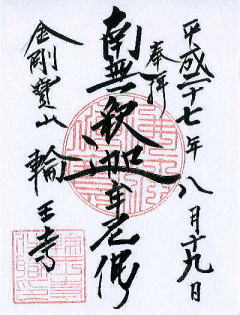 奉拝
平成二十七年八月十九日
南無釈迦牟尼佛
金剛寶山
輪王寺